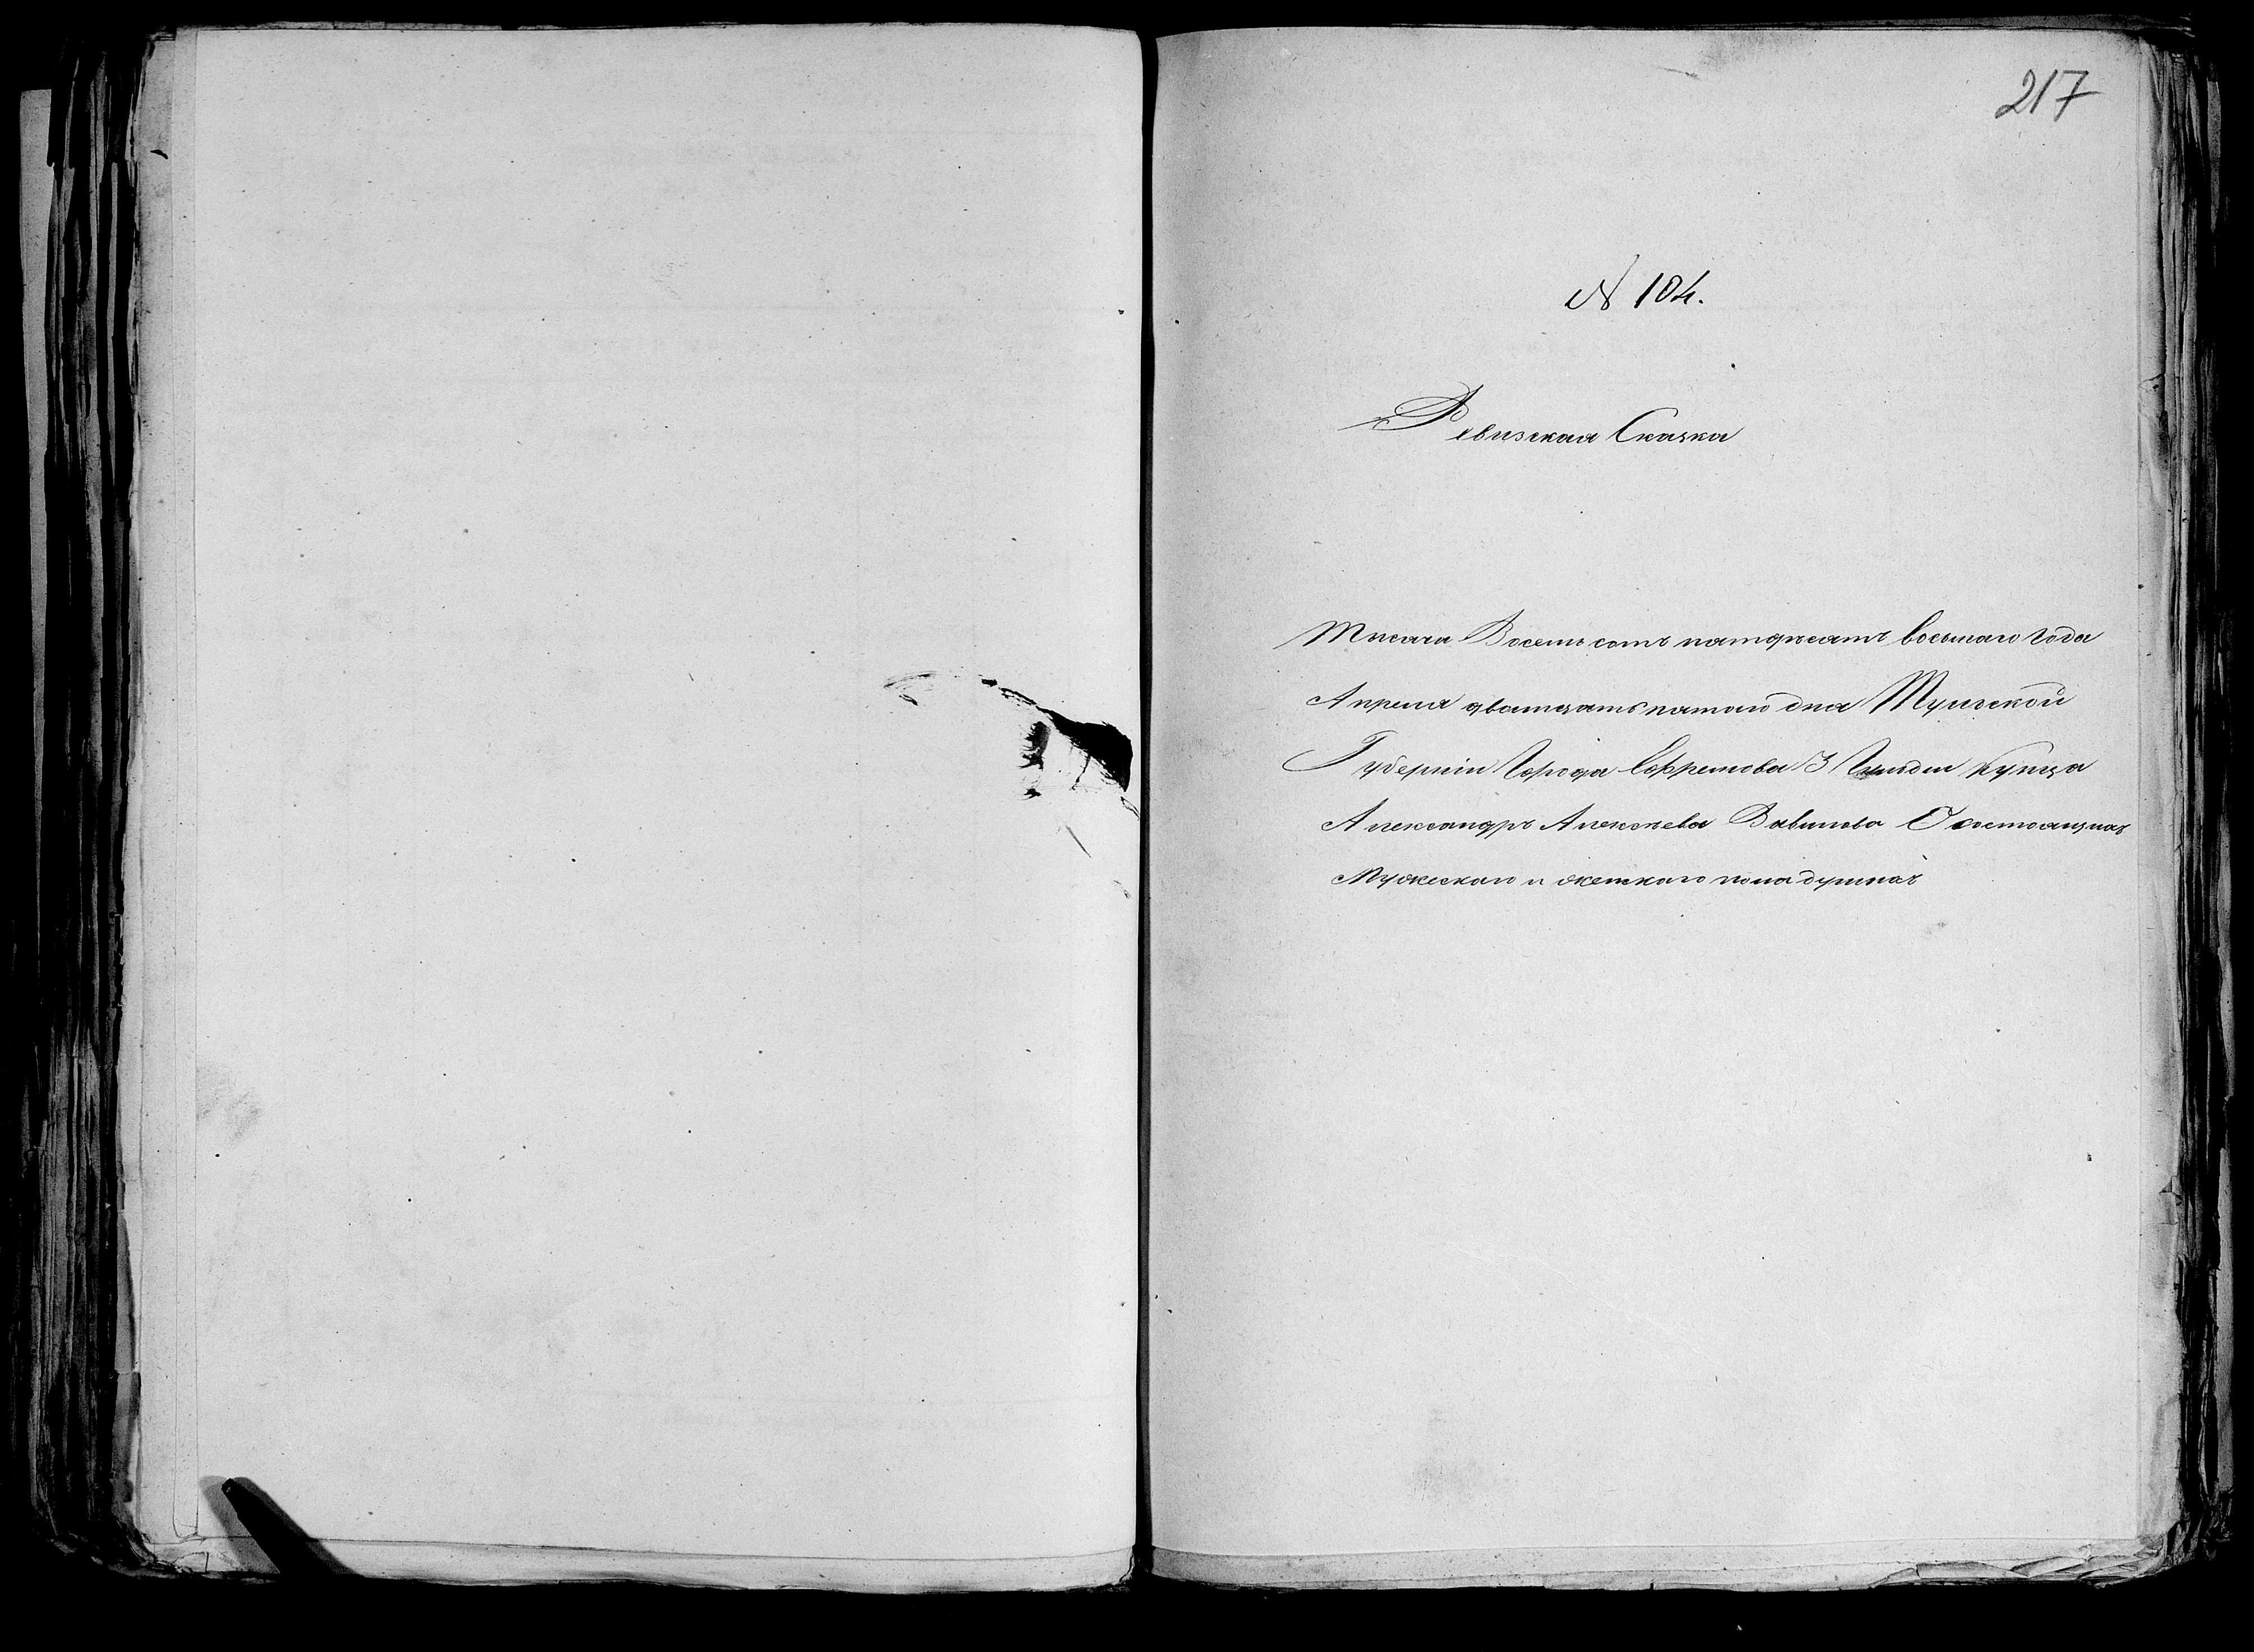 217
№ 104.
Ревизская Сказка
Тысяча Восемь сотъ пятдѣсятъ восьмаго Года
Апреля дватцать пятаго дня Тульской
Губерніи Города Ефремова 3 Гильдіи Купца
Александръ Алексѣева Вавилова О состоящихъ
Мужескаго и женскаго пола душахъ